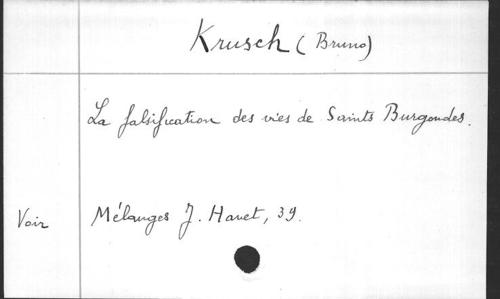 Krusch (Bruno)
La falsification des vies de Saints Burgondes.
Voir Mélanges J. Havet, 39.